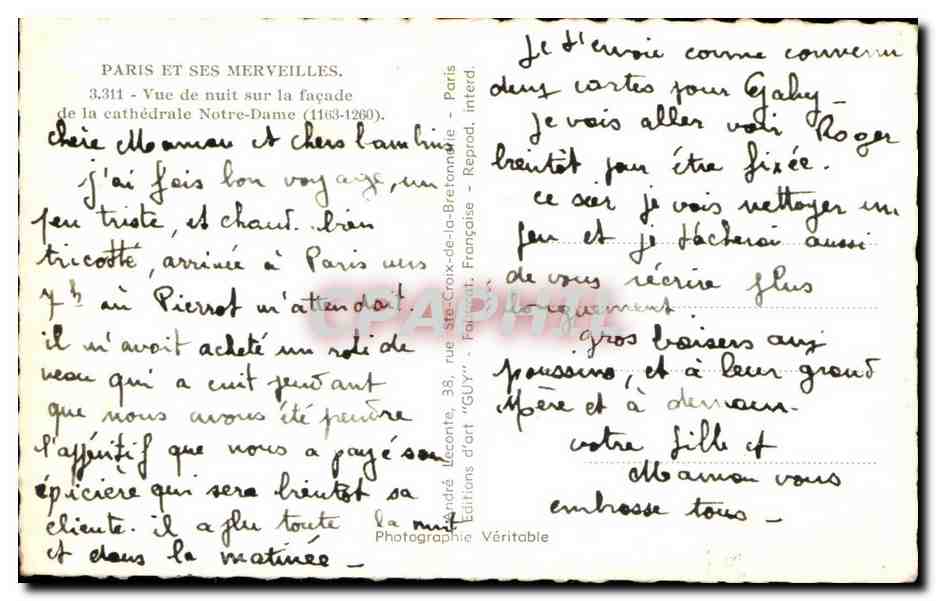 PARIS ET SES MERVEILLES.
3.311 - Vue de nuit sur la façade
de la cathédrale Notre-Dame (1163-1260).
chère Maman et chers bambins
j'ai fais bon voyage, un
peu triste, et chaud. bien
tricotté, arrivée à Paris vers
7h où Pierrot m'attendait.
il m'avait acheté un roti de
veau qui a cuit pendant
que nous avons été prendre
l'appéritif que nous a payé son
épicière qui sera bientot sa
cliente. il a plu toute la nuit
et dans la matinée -
André Leconte, 38, rue Ste-Croix-de-la-Bretonnerie - Paris
Editions d'art "GUY" - Française - Reprod. interd.
Photographie Véritable
Je t'envoie comme convenu
deux cartes pour Gaby -
Je vais aller voir Roger
bientôt pour être fixée.
ce soir je vais nettoyer un
peu et je tâcherai aussi
de vous récrire plus
longuement
gros baisers aux
poussins, et à leur grand
Mère et à demain.
votre fille et
Maman vous
embrasse tous -
CPAPHIL